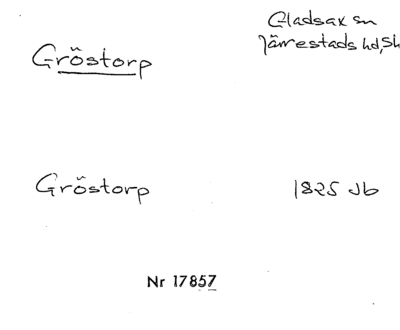 Gröstorp
Gladsax sn
Järrestads hd, Sk
Gröstorp
1825 Jb
Nr 17857